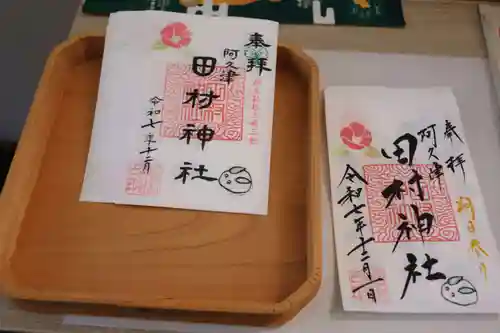 奉拝
阿久津
田村神社
令和七年十二月
奉拝
阿久津
田村神社
朔日参り
令和七年十二月一日